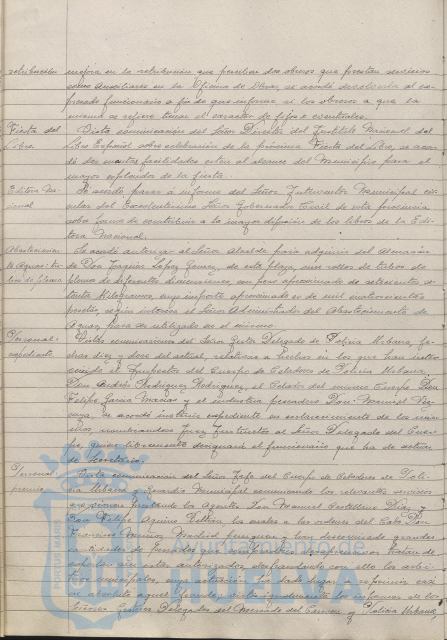 retribución mejora en la retribución que perciben dos obreros que prestan servicios
como auxiliares en la Oficina de Obras, se acordó devolverla al ex-
presado funcionario a fin de que informe si los obreros a que la
misma se refiere tienen el caracter de fijos o eventuales.
Fiesta del Vista comunicación del Señor Director del Instituto Nacional del
Libro. Libro Español sobre celebración de la próxima Fiesta del Libro, se acor-
dó dar cuantas facilidades estén al alcance del Municipio para el
mayor esplendor de la fiesta.
Editora Na- Se acordó pasar a informe del Señor Interventor Municipal cir-
cional cular del Excelentísimo Señor Gobernador Civil de esta provincia
sobre forma de contribuir a la mayor difusión de los libros de la Edi-
tora Nacional.
Abastecimien- Se acordó autorizar al Señor Alcalde para adquirir del Almacén
to Aguas: tu- de Don Joaquín López Gómez, de esta plaza, un rollos de tubos de
bos de plomo plomo de diferentes dimensiones, con peso aproximado de setecientos
kilogramos, cuyo importe aproximado es de mil cuatrocientas
pesetas, según interesa el Señor Administrador del Abastecimiento de
Aguas para ser utilizado en el mismo.
Personal: Vistas comunicaciones del Señor Gestor Delegado de Policía Urbana, fe-
expediente chas diez y doce del actual, relativas a hechos en los que han inter-
venido el Inspector del Cuerpo de Celadores de Policía Urbana,
Don Andrés Rodríguez Rodríguez, el Celador del mismo Cuerpo Don
Felipe García Macías y el industrial pescadero Don Manuel
se acordó instruir expediente en esclarecimiento de los mis-
mos nombrándose Juez Instructor al Señor Delegado del Cuer-
po, quien libremente designará el funcionario que ha de actuar
de Secretario.
Personal: Vista comunicación del Señor Jefe del Cuerpo de Celadores de Poli-
premio cía Urbana y Guardia Municipal comunicando los relevantes servicios
que vienen prestando los Agentes Don Manuel Castellano Díaz y
Don Felipe Aquino Beltrán, los cuales a las ordenes del Cabo Don
Francisco persiguen y han decomisado grandes
cantidades de pescados que comerciantes desaprensivos tratan de
exportar sin estar autorizados, defraudando con ello los arbi-
trios municipales, cuya actuación ha dado lugar a reprimir casi
en absoluto aquel fraude; visto igualmente los informes de los
Señores Gestores Delegados del Mercado del Carmen y Policía Urbana,